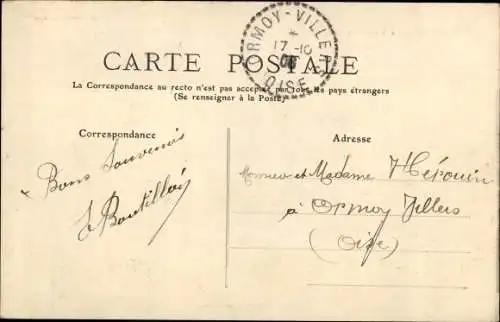 ORMOY-VILLERS
*
17-10
06
OISE
CARTE POSTALE
La Correspondance au recto n'est pas acceptée par tous les pays étrangers
(Se renseigner à la Poste)
Correspondance
Bons Souvenirs
Adresse
Monsieur et Madame Hérouin
à Ormoy Villers
(Oise)